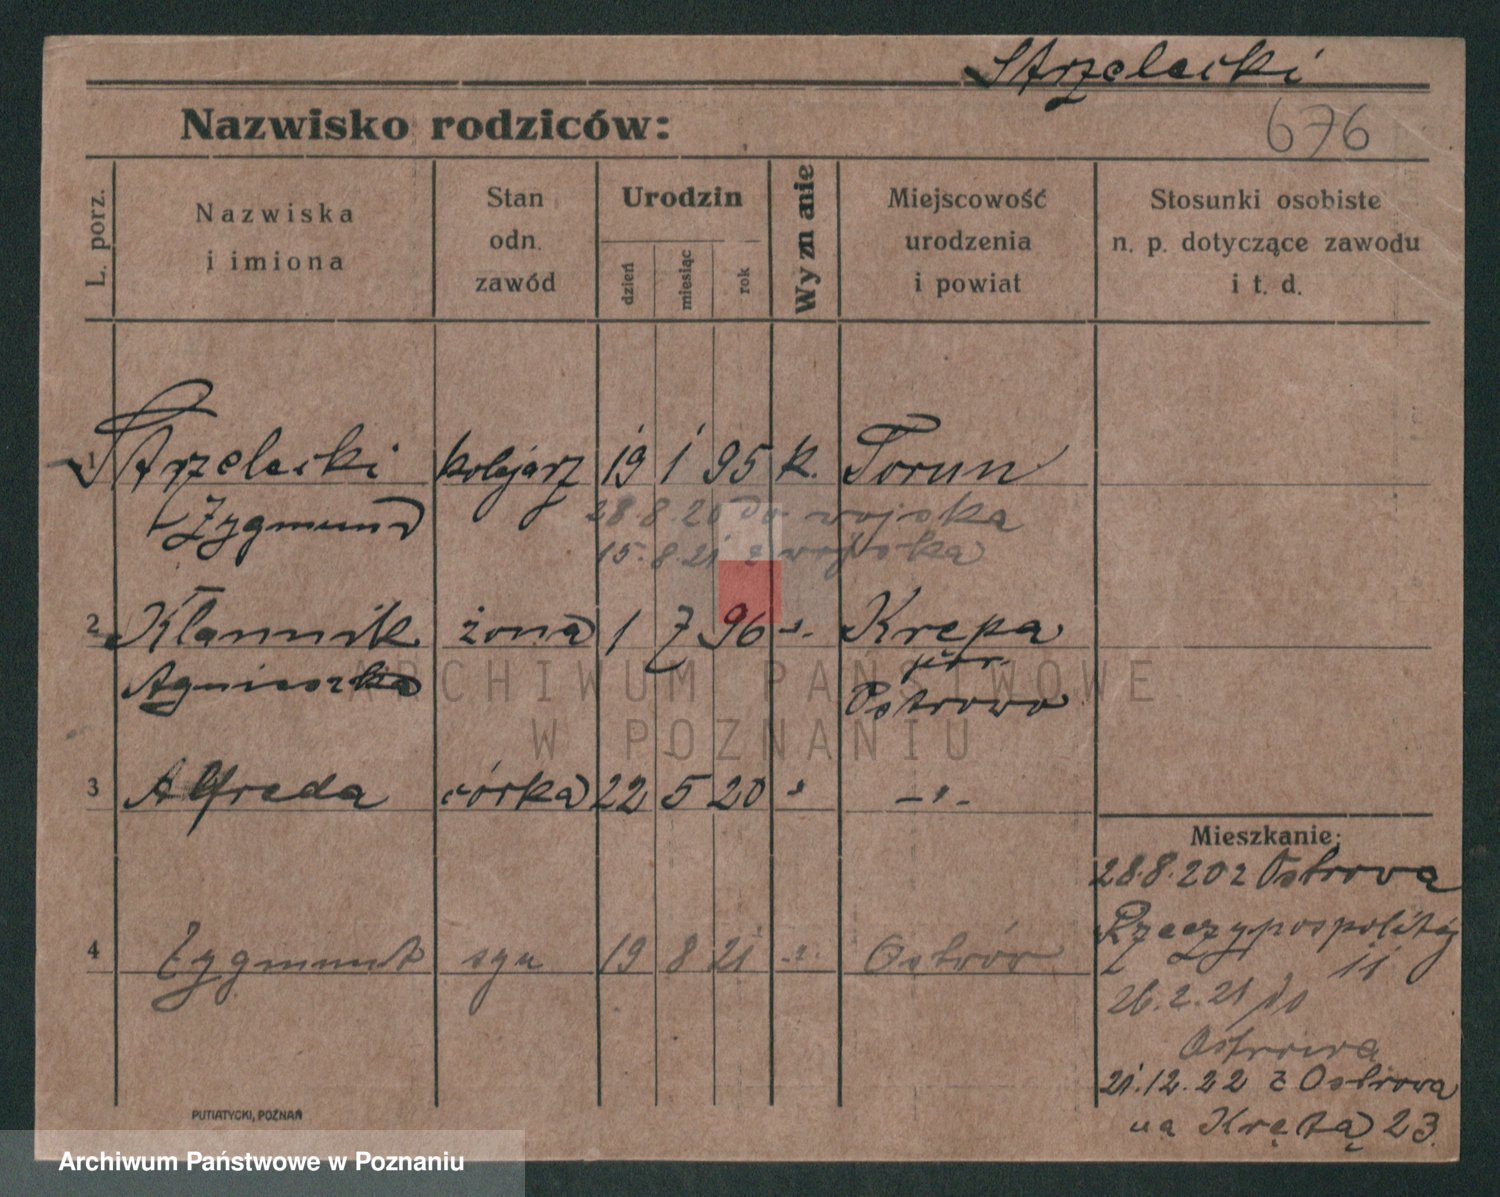 Strzelecki
Nazwisko rodziców:
676
L. porz.
Nazwiska
i imiona
Stan
odn.
zawód
Urodzin
dzień
miesiąc
rok
Wyznanie
Miejscowość
urodzenia
i powiat
Stosunki osobiste
n. p. dotyczące zawodu
i t. d.
1 Strzelecki kolejarz 19 1 95 k. Torun
Zygmund 28.8.20 do wojska
15.8.21 z wojska
2 Klannik żona 1 7 96 -"- Krępa
Agnieszka pow.
Ostrowo
3 Alfreda córka 22 5 20 " -"-
4 Zygmunt syn 19 8 21 -"- Ostrów
Mieszkanie:
28.8.20 z Ostrowa
Rzeczypospolitej
11
26.2.21 do
Ostrowa
21.12.22 z Ostrowa
na Krętą 23.
PUTIATYCKI, POZNAŃ
ARCHIWUM PAŃSTWOWE
W POZNANIU
Archiwum Państwowe w Poznaniu